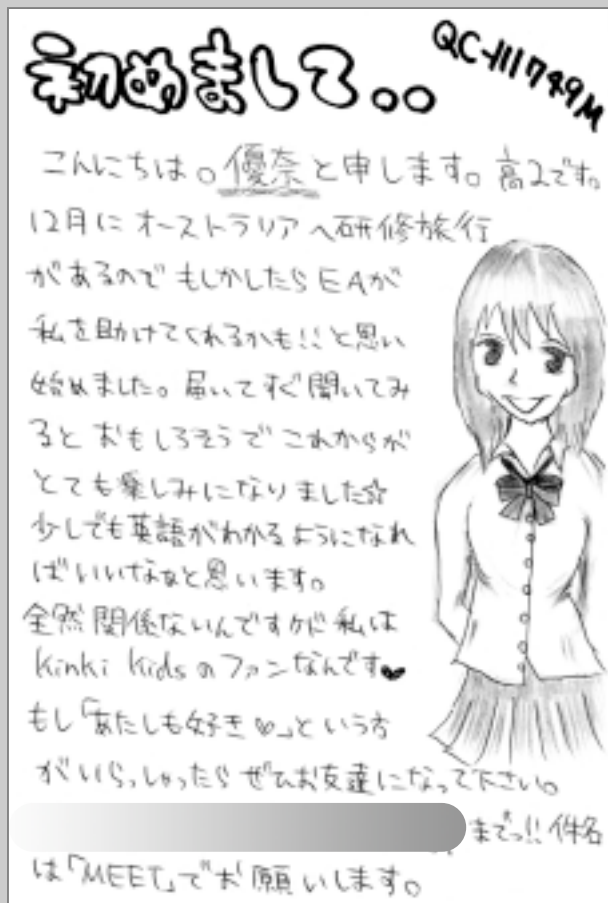 初めまして..
QC-111749M
こんにちは。優奈と申します。高2です。
12月にオーストラリアへ研修旅行
があるのでもしかしたらEAが
私を助けてくれるかも!!と思い
始めました。届いてすぐ聞いてみ
るとおもしろそうでこれからが
とても楽しみになりました☆
少しでも英語がわかるようになれ
ばいいなぁと思います。
全然関係ないんですけど私は
Kinki Kidsのファンなんです♥
もし「あたしも好き♡」という方
がいらっしゃったらぜひお友達になって下さい。
までっ!! 件名
は「MEET」でお願いします。